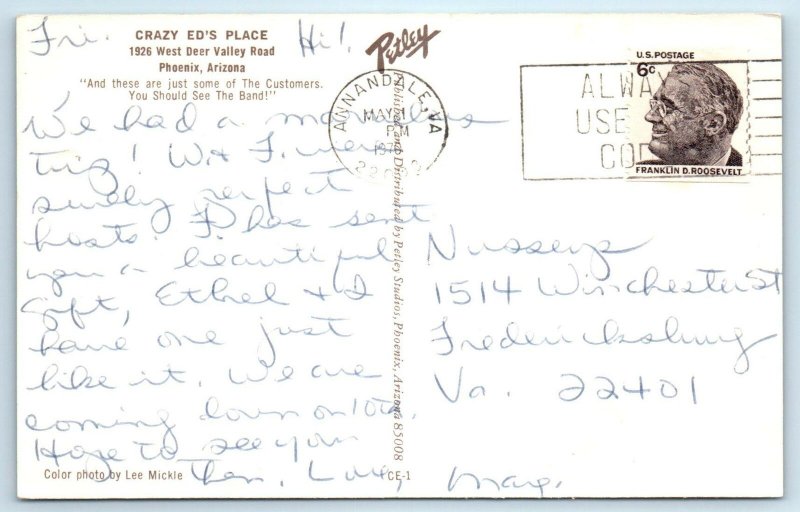 CRAZY ED'S PLACE
1926 West Deer Valley Road
Phoenix, Arizona
"And these are just some of The Customers.
You Should See The Band!"
Fri. Hi!
We had a marvelous
trip! W + F. were
surely perfect
hosts. F. has sent
you a beautiful
gift, Ethel + I
have one just
like it. We are
coming down on 10th.
Hope to see you
then, Love, Marg.
Color photo by Lee Mickle
CE-1
Petley
Published and Distributed by Petley Studios, Phoenix, Arizona 85008
ANNANDALE, VA
MAY
PM
ALWAYS
USE
U.S. POSTAGE
6c
FRANKLIN D. ROOSEVELT
Nusseys
1514 Winchester St
Fredericksburg
Va. 22401